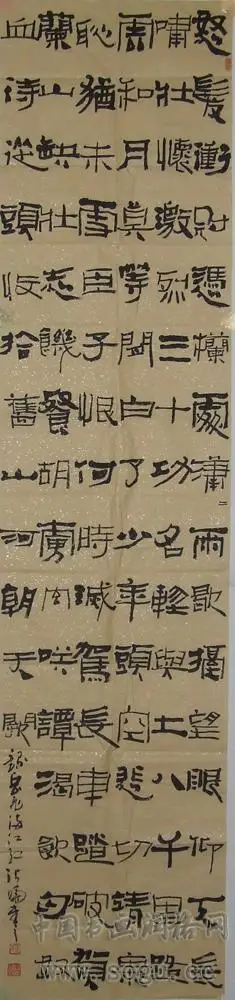 怒髮衝冠憑欄處瀟二雨歇擡望眼仰天長
嘯壯懷激烈三十功名塵與土八千里路
雲和月莫等閒白了少年頭空悲切靖康
恥猶未雪臣子恨何時滅駕長車踏破賀
蘭山缺壯志饑餐胡虜肉咲譚渴飲匈奴
血待從頭收拾舊山河朝天闕
錄岳飛滿江紅
中国书画润格网